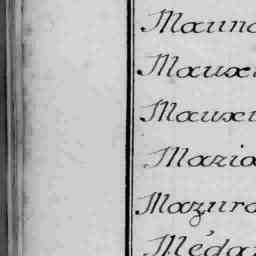 Mauno
Mauxi
Mauxi
Mazia
Mazuro
Méda